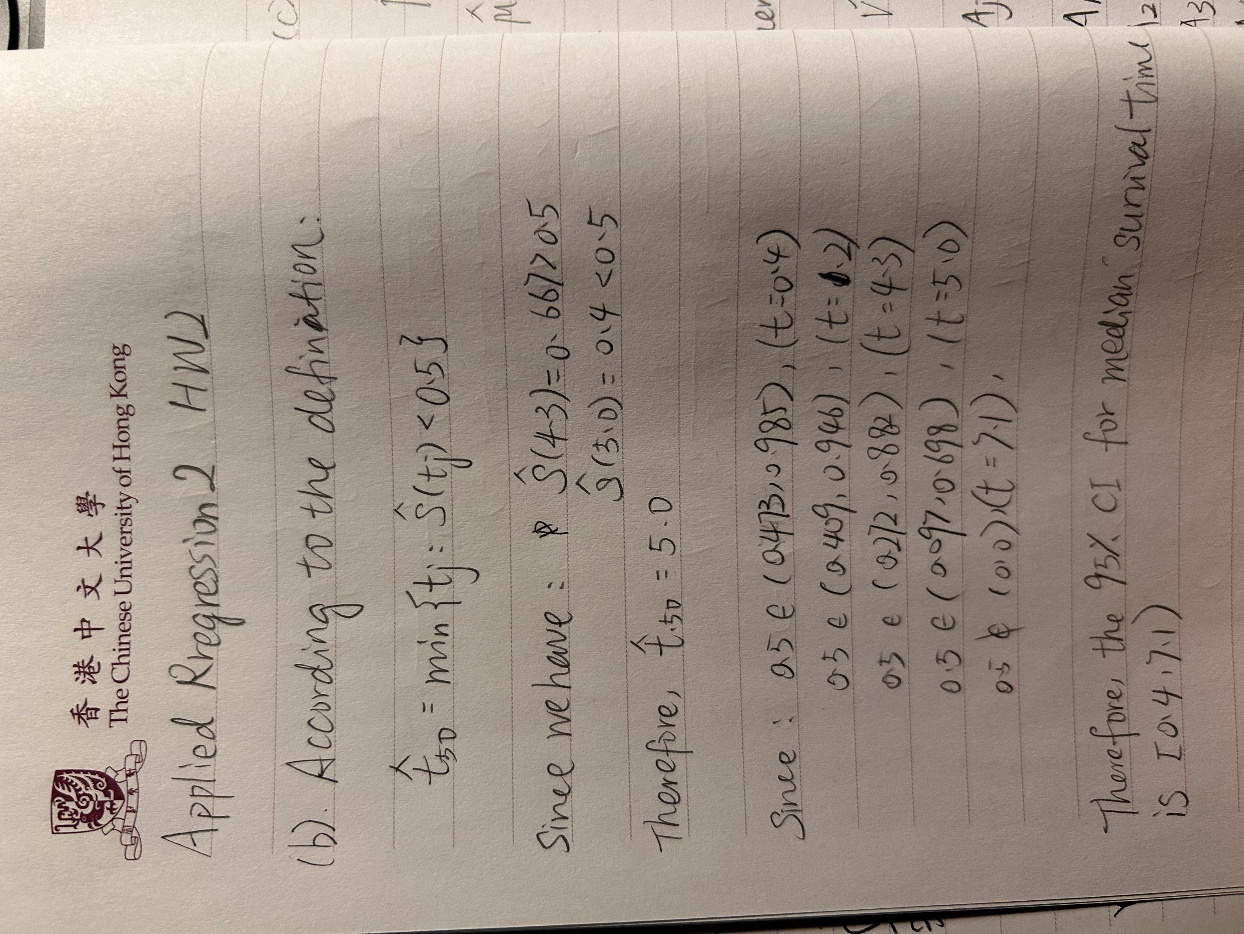 香港中文大學
The Chinese University of Hong Kong
Applied Rregression 2 HW2
(b). According to the defination:
t̂50 = min{tj : Ŝ(tj) < 0.5}
Since we have : Ŝ(4.3) = 0.667 > 0.5
Ŝ(5.0) = 0.4 < 0.5
Therefore, t̂.50 = 5.0
Since : 0.5 ∈ (0.473, 0.985), (t=0.4)
0.5 ∈ (0.409, 0.946), (t= .2)
0.5 ∈ (0.272, 0.882), (t=4.3)
0.5 ∈ (0.097, 0.698), (t=5.0)
0.5 ∉ (0.0), (t=7.1),
Therefore, the 95% CI for median survival time
is [0.4, 7.1)
(c)